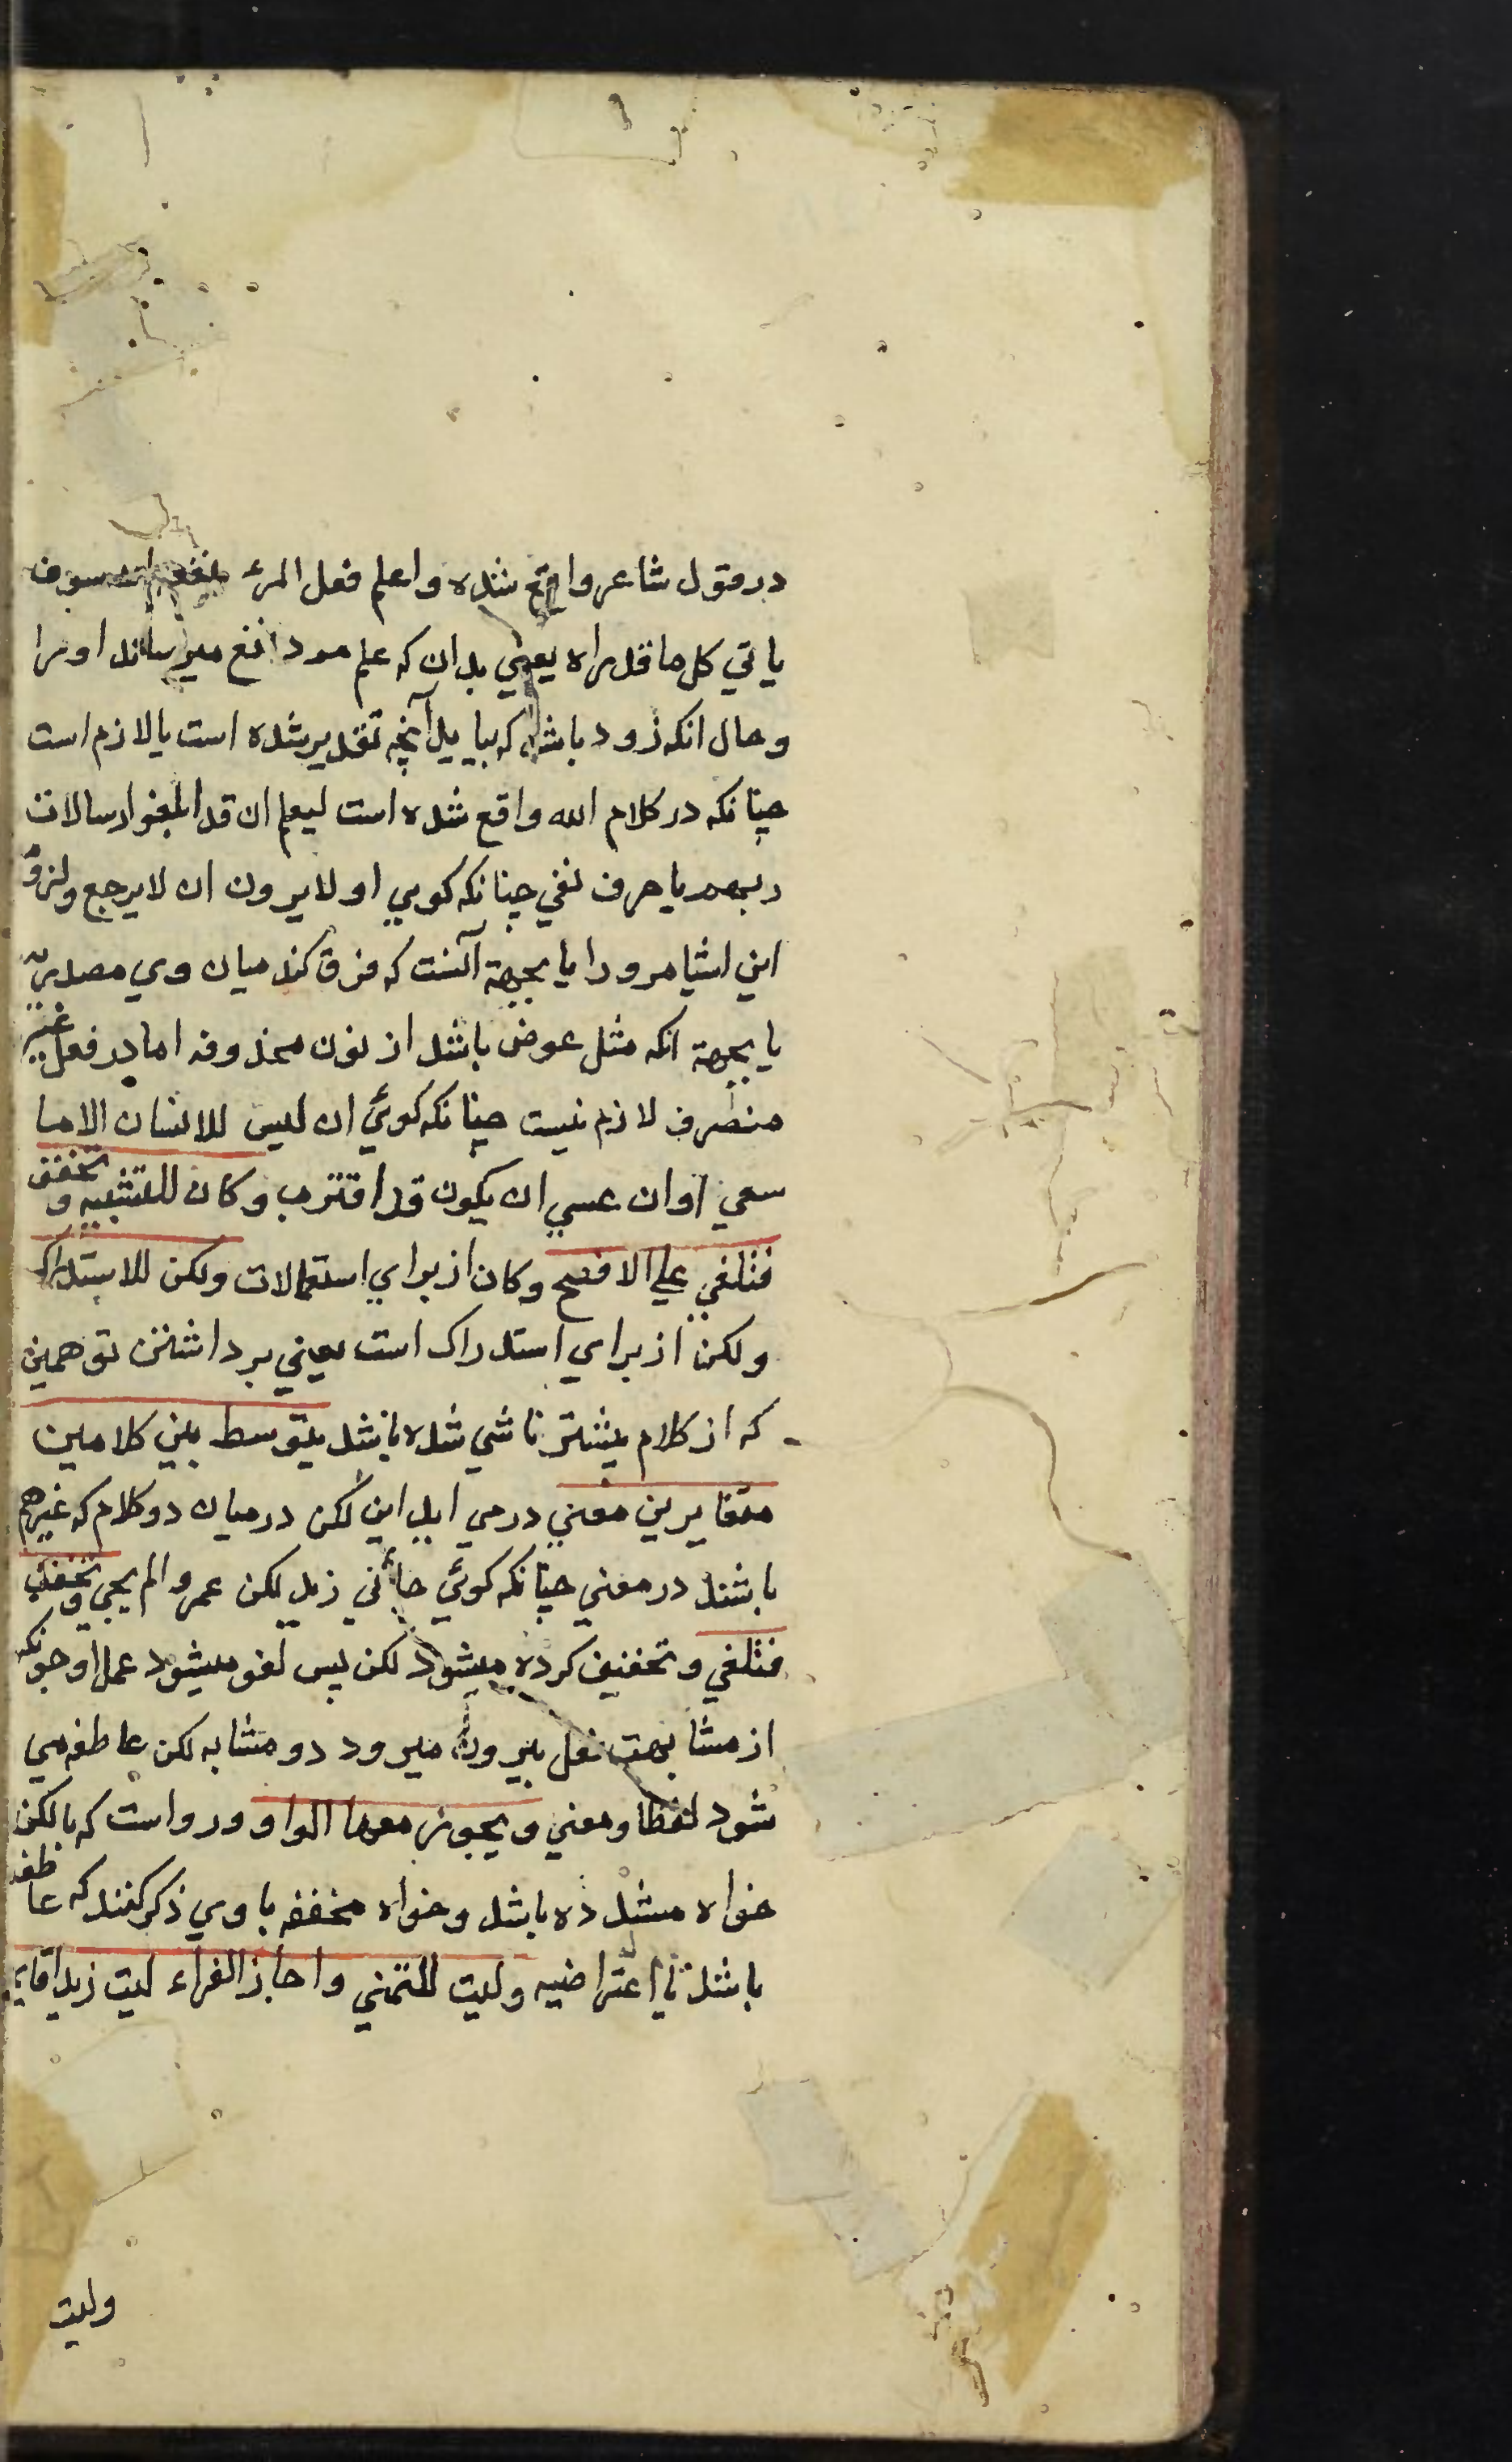 در قول شاعر واقع شده واعلم فعل المرء ينفعه ان سوف
ياتي كل ما قدراه يعني بدان كه علم مرد نفع ميرساند اورا
وحال انكه زود باشد كه بيايد آنچه تقدير شده است يا لازم است
چنانكه در كلام الله واقع شده است ليعلم ان قد ابلغوا رسالات
ربهم يا حرف نفي چنانكه كويي اولا يرون ان لا يرجع ولزوم
اين اشيا مرورا يا بجهة آنست كه فرق كند ميان وي مصدريه
يا بجهة انكه مثل عوض باشد از نون محذوفه اما در فعل غير
منصرف لازم نيست چنانكه كوئي ان ليس للانسان الا ما
سعي او ان عسي ان يكون قد اقترب وكان للتشبيه وتخفف
فتلغي علي الافصح وكان از براي استعمالات ولكن للاستدراك
ولكن از براي استدراك است يعني برداشتن توهمين
كه از كلام پيشتر ناشي شده باشد يتوسط بين كلامين
متغايرين معني درمي ايد اين لكن درميان دو كلام كه غيرهم
باشند در معني چنانكه كوئي جائني زيد لكن عمروا لم يجي وتخفف
فتلغي وتخفيف كرده ميشود لكن پس لغو ميشود عمل او چونكه
از مشابهت فعل بيرون ميرود دو مشابه لكن عاطفه مي
شود لفظا ومعني ويجوز معها الواو ورواست كه با لكن
خواه مشدده باشد وخواه مخففه با وي ذكر كنند كه عاطفه
باشد يا اعتراضيه وليت للتمني واجاز الفراء ليت زيدا قايما
وليت